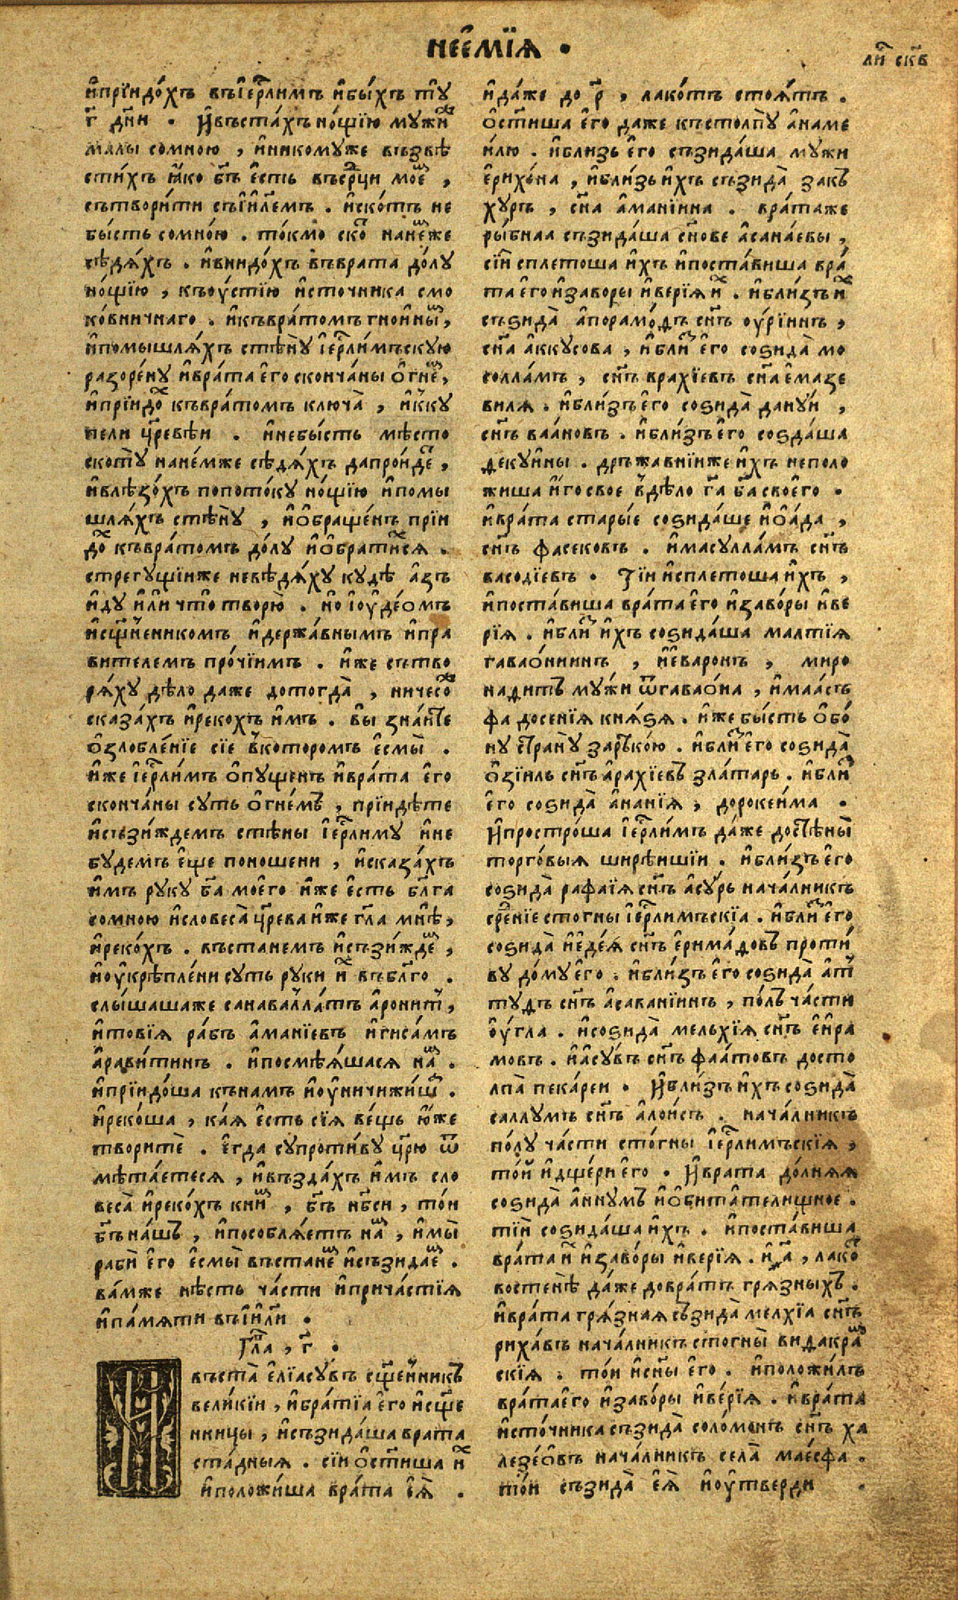 нее҆мїꙗ .
ли҇ скв
и҆прїидо́хъ въі҆ер҇лимъ и҆бы́хъ тꙋ
г҃ дн҃и . И҆въста́хъ но́щїю мꙋжи
малы сомною , и҆никомꙋже възвѣ
сти́хъ ꙗ҆ко бг҃ъ є҆сть въср҇ци мое҆ ,
сътвори́ти съі҆и҃лемъ . и҆ско́тъ не
бы́сть сомно́ю . то́кмо ско҇ нане́же
сѣдѧ́хъ . и҆внидо́хъ въврата до́лꙋ
но́щїю , къоу҆́стїю и҆сточника смо
ко́вничнаго . и҆къвра́томъ гнои҆ны ,
и҆помышлѧ́хъ стѣ́нꙋ і҆ер҇лимъскꙋю
разоре́нꙋ и҆врата е҆го сконча́ны о҆гне ,
и҆прїидо къвра́томъ ключа̀ , и҆кꙋ
пели цр҃евѣи . и҆небы́сть мѣсто
ско́тꙋ нане́мже сѣдѧ́хъ дапрои́де ,
и҆влѣзо́хъ попото́кꙋ но́щїю и҆помы
шлѧ́хъ стѣ́нꙋ , и҆о҆браще́нъ прїи
до къвра́томъ до́лꙋ и҆о҆брати́сѧ .
стрегꙋщїиже невѣдѧ́хꙋ кꙋдѣ а҆зъ
и҆дꙋ и҆ли что̀ творю̀ . но і҆оу҆де́омъ
и҆сщ҃е́нникомъ и҆держа́внымъ и҆пра
вителемъ про́чїимъ . и҆же сътво
рѧ́хꙋ дѣло даже дотогда̀ , ничесо
сказа́хъ и҆рекохъ и҆мъ . вы зна́ите
о҆злобле́нїе сїе в҆которомъ е҆смы̀ .
и҆же і҆ер҇лимъ о҆пꙋщенъ и҆врата е҆го
сконча́ны сꙋть о҆гне́мъ , прїидѣте
и҆съзи́ждемъ стѣ́ны і҆ер҇лимꙋ и҆не
бꙋдемъ е҆ще поношени , и҆сказа́хъ
и҆мъ рꙋкꙋ бг҃а мое҆го и҆же є҆сть бл҃га
сомною и҆словеса̀ цр҃ева и҆же гл҃а мнѣ̀ ,
и҆реко́хъ . въстанемъ и҆съзи́жде ,
и҆оу҆крѣпле́ни сꙋть рꙋки и҆ въбл҃го .
слы́шашаже санавалла́тъ а҆ронит ,
и҆товїꙗ ра́бъ а҆манїевъ и҆гиса́мъ
а҆рави́тинъ . и҆посмѣѧ́шасѧ на .
и҆прїидо́ша къна́мъ и҆оу҆ничижи́ш .
и҆реко́ша , ка́ꙗ є҆сть сїꙗ вещь ю҆же
творитѐ . е҆гда сꙋпроти́вꙋ цр҃ю ѿ
мѣта́етесѧ , и҆въздахъ и҆мъ сло
веса̀ и҆реко́хъ кни , бг҃ъ нб҃си , то́и
бг҃ъ на́шъ , и҆пособлѧ́етъ на , и҆мы̀
раби̇̀ е҆го е҆смы̀ въстане и҆съзидае .
ва́мже нѣсть ча́сти и҆прича́стїѧ
и҆па́мѧти въі҆и҃ли .
Гл҃а , г҃ .
И҆
въста̀ е҆лїасꙋ́въ сщ҃е́нникъ
вели́кїи , и҆бра́тїа е҆го и҆сщ҃е
нницы , и҆съзида́ша врата
ста́дныꙗ . сїи о҆стиша и҆
и҆положи́ша врата е҆ѧ̀ .
и҆да́же до р҃ , лако́тъ стоѧ́тъ .
о҆стиша е҆го даже къстолпꙋ̀ а҆наме
и҆лю . и҆близь е҆го съзида́ша мꙋжи
е҆рихо́на , и҆бли́зь и҆хъ съзида̀ закъ
хꙋръ , сн҃а а҆мани́ина . вра́таже
ры́бнаа съзида́ша сн҃ове а҆сана́евы ,
сїи сплетоша и҆хъ и҆поста́виша вра
та е҆го и҆заворы и҆верїѧ и҆ . и҆бли́зъ и҆
съѕида̀ а҆порамо́дъ сн҃ъ оу҆рїинъ ,
сн҃а а҆ккꙋсова , и҆бли е҆го соѕида̀ мо
соллмъ , сн҃ъ врахїевъ сн҃а е҆мазе
вилѧ . и҆бли́зъ е҆го соѕида̀ данꙋи ,
сн҃ъ ваановъ . и҆бли́зъ е҆го соѕдаша
декꙋи́ны . дръжавнїиже и҆хъ неполо
жиша и҆́го свое в҆дѣло гд҃а бг҃а своего .
и҆врата старые соѕидаше и҆о҆а́да ,
сн҃ъ фасековъ . и҆масꙋлламъ сн҃ъ
васодїевъ . Тїи и҆сплетоша и҆хъ ,
и҆поста́виша врата е҆го и҆заво́ры и҆ве
рїѧ . и҆бли и҆хъ соѕида́ша малтїѧ
гаваѡ́нинъ , и҆е҆варонъ , миро
надитъ мꙋ́жи ѿгаваѡна , и҆мааст
фа досенїꙗ кнѧ́ѕѧ . и҆же бы́сть о҆бо
нꙋ странꙋ зарѣко́ю . и҆бли е҆го соѕида̀
о҆зїиль сн҃ъ а҆рахїевъ златарь . и҆бли
е҆го соѕида̀ а҆нанїꙗ , дорокеима .
И҆простро́ша і҆ер҇лимъ да́же достѣны̀
торго́выѧ ширѣишїи . и҆бли́зъ е҆го
соѕида̀ рафаїꙗ сн҃ъ а҆сꙋ́рь нача́лникъ
сре́нїе стогны і҆ер҇лимъскїа . и҆бли е҆го
соѕида̀ и҆е҆деꙗ сн҃ъ е҆рима́довъ проти́
вꙋ до́мꙋ е҆го . и҆бли́зъ е҆го соѕида̀ а҆т
тꙋдъ сн҃ъ а҆саванїинъ , по́лъ ча́сти
оу҆гла . и҆соѕида̀ мельхїѧ сн҃ъ е҆ира
мовъ . и҆а҆сꙋвъ сн҃ъ фаа́товъ до́сто
лпа пека́реи . И҆бли́зъ и҆хъ соѕида̀
саллꙋмъ сн҃ъ а҆лои́съ . нача́лникъ
по́лꙋ ча́сти сто́гны і҆ер҇лимъскїѧ ,
то́и и҆дще́ри е҆го . И҆врата до́лнѧѧ
соѕида̀ а҆ннꙋмъ и҆о҆битателищное .
тїи соѕида́ша и҆хъ . и҆поста́виша
врата и҆ и҆заво́ры и҆верїѧ . и҆ , а҃ , лако
востенѣ̀ да́же довра́тъ грѧ́зныхъ .
и҆врата грѧ́знаꙗ съзида̀ мелхїа сн҃ъ
риха́въ нача́лникъ стогны̀ видакра
скїѧ . то́и и҆сн҃ы е҆го . и҆положи́лъ
врата е҆го и҆заво́ры и҆ве́рїѧ . и҆врата
и҆сто́чника съзида̀ соло́монъ сн҃ъ ха
лезео́въ нача́лникъ села̀ маесфа .
то́и съзида̀ е҆ѧ̀ и҆оу҆тверди .